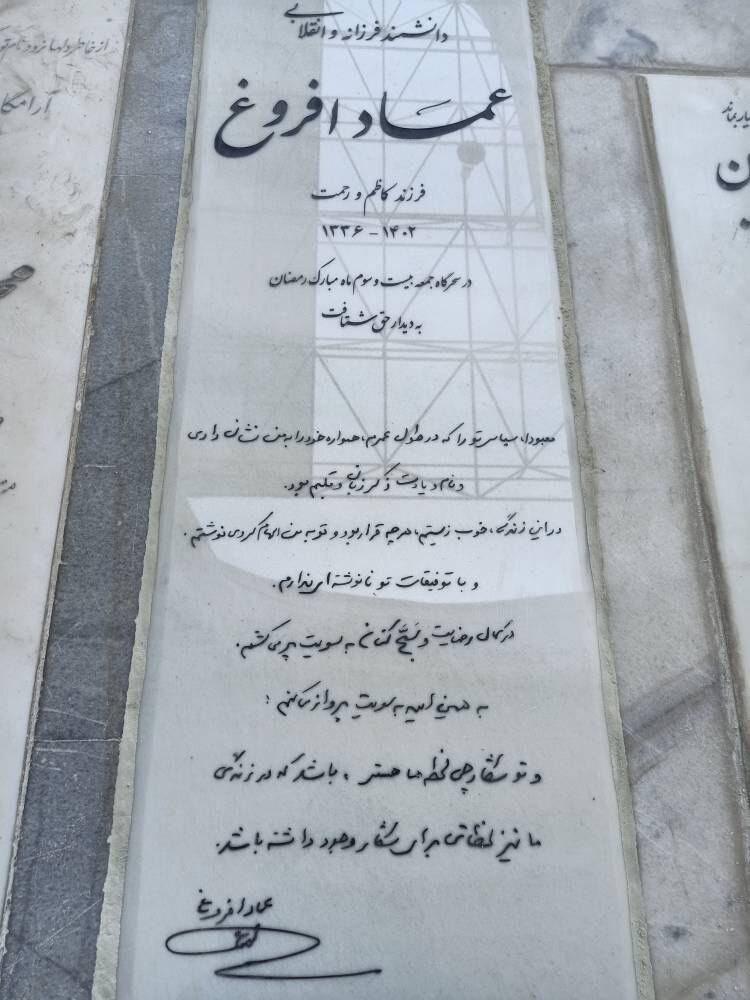 دانشمند فرزانه و انقلابی
عماد افروغ
فرزند کاظم و رحمت
۱۳۳۶ - ۱۴۰۲
در سحرگاه جمعه بیست و سوم ماه مبارک رمضان
به دیدار حق شتافت
معبودا، سپاس تو را که در طول عمرم، همواره خود را به من نشان دادی
و نام و یادت ذکر زبان و قلبم بود.
در این زندگی، خوب زیستم، هرچه قرار بود و تو به من الهام کردی نوشتم.
و با توفیقات تو نانوشته‌ای ندارم.
در کمال رضایت و تسبیح کنان به سویت پر می کشم.
به همین امید به سویت پرواز می‌کنم:
و تو شکارچی لحظه ها هستی، باشد که در زندگی
ما نیز لحظاتی برای شکار وجود داشته باشد.
عماد افروغ